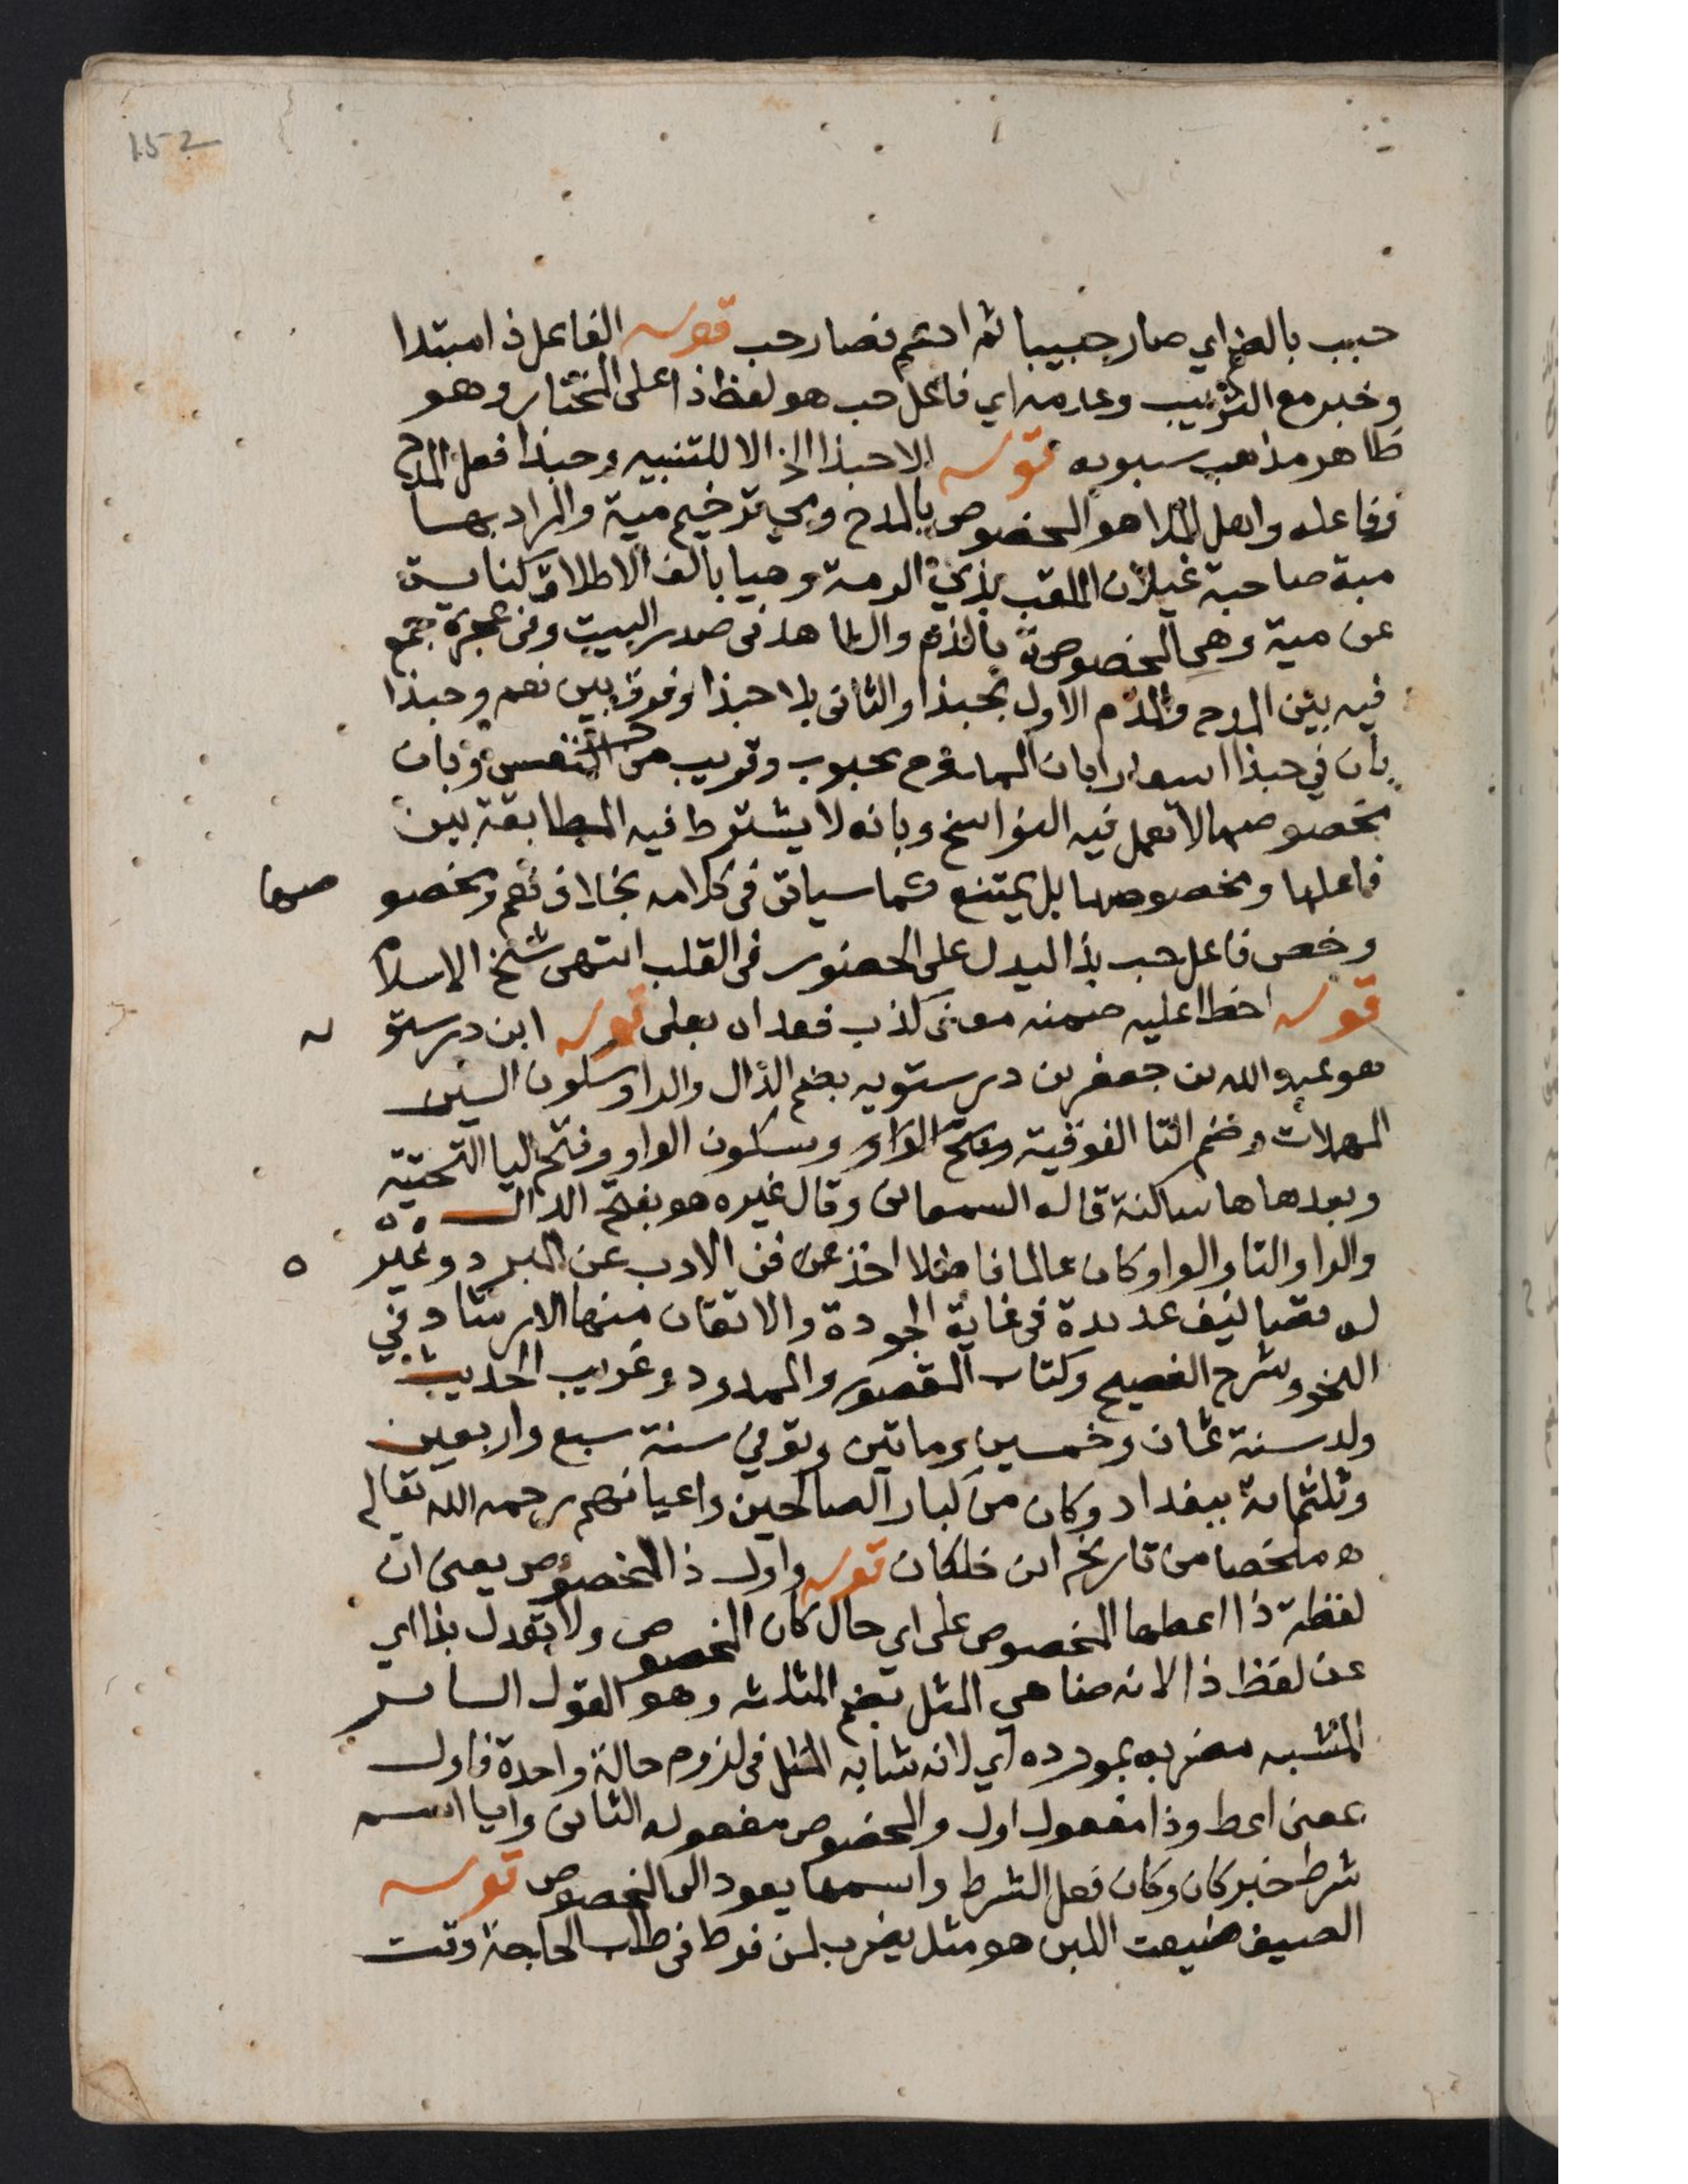 152
حبب بالضم اي صار حبيبا ثم ادغم فصار حب قوله الفاعل ذا مبتدا
وخبر مع التركيب وعدمه اي فاعل حب هو لفظ ذا على المختار وهو
ظاهر مذهب سيبويه قوله الا حبذا الخ الا للتنبيه وحبذا فعل المدح
وفاعله واهل الملا هو المخصوص بالمدح ومي ترخيم مية والمراد بها
مية صاحبة غيلان الملقب بذي الرمة وهيا بالف الاطلاق كناية
عن مية وهي المخصوصة بالذم والشاهد في صدر البيت وفي عجزه جمع
فيه بين المدح والذم الاول بحبذا والثاني بلا حبذا وفرق بين نعم وحبذا
بان في حبذا اشعارا بان الممدوح محبوب وقريب من النفس وبان
مخصوصها لا تعمل فيه النواسخ وبانه لا يشترط فيه المطابقة بين
فاعلها ومخصوصها بل يمتنع كما سياتي في كلامه بخلاف نعم ومخصو صها
وخص فاعل حب بذا ليدل على الحضور في القلب انتهى شيخ الاسلام
قوله اخطا عليه ضمنه معنى كذب فعداه بعلى قوله ابن درستو يه
هو عبد الله بن جعفر بن درستويه بضم الدال والرا وسكون السين
المهملات وضم التا الفوقية وفتح الواو وسكون الواو وفتح اليا التحتية
وبعدها ها ساكنة قاله السمعاني وقال غيره هو بفتح الدال
والرا والتا والواو كان عالما فاضلا اخذ عن فن الادب عن المبرد وغير ه
له تصانيف عديدة في غاية الجودة والاتقان منها الارشاد في
النحو وشرح الفصيح وكتاب المقصور والممدود وغريب الحديث
ولد سنة ثمان وخمسين وماتين وتوفي سنة سبع واربعين
وثلثماية ببغداد وكان من كبار الصالحين واعيانهم رحمه الله تعالى
اه ملخصا من تاريخ ابن خلكان قوله واول ذا المخصوص يعني ان
لفظة ذا اعطها المخصوص على اي حال كان المخصوص ولا تعدل بذا اي
عن لفظ ذا لانه ضاهي المثل بضم المثلثه وهو القول الساير
المشبه مضربه بمورده اي لانه شابه المثل في لزوم حالة واحدة فاول
بمعنى اعط وذا مفعول اول والمخصوص مفعوله الثاني وايا اسم
شرط خبر كان وكان فعل الشرط واسمها يعود الى المخصوص قوله
الصيف ضيعت اللبن هو مثل يضرب لمن فرط في طلب الحاجة وقت